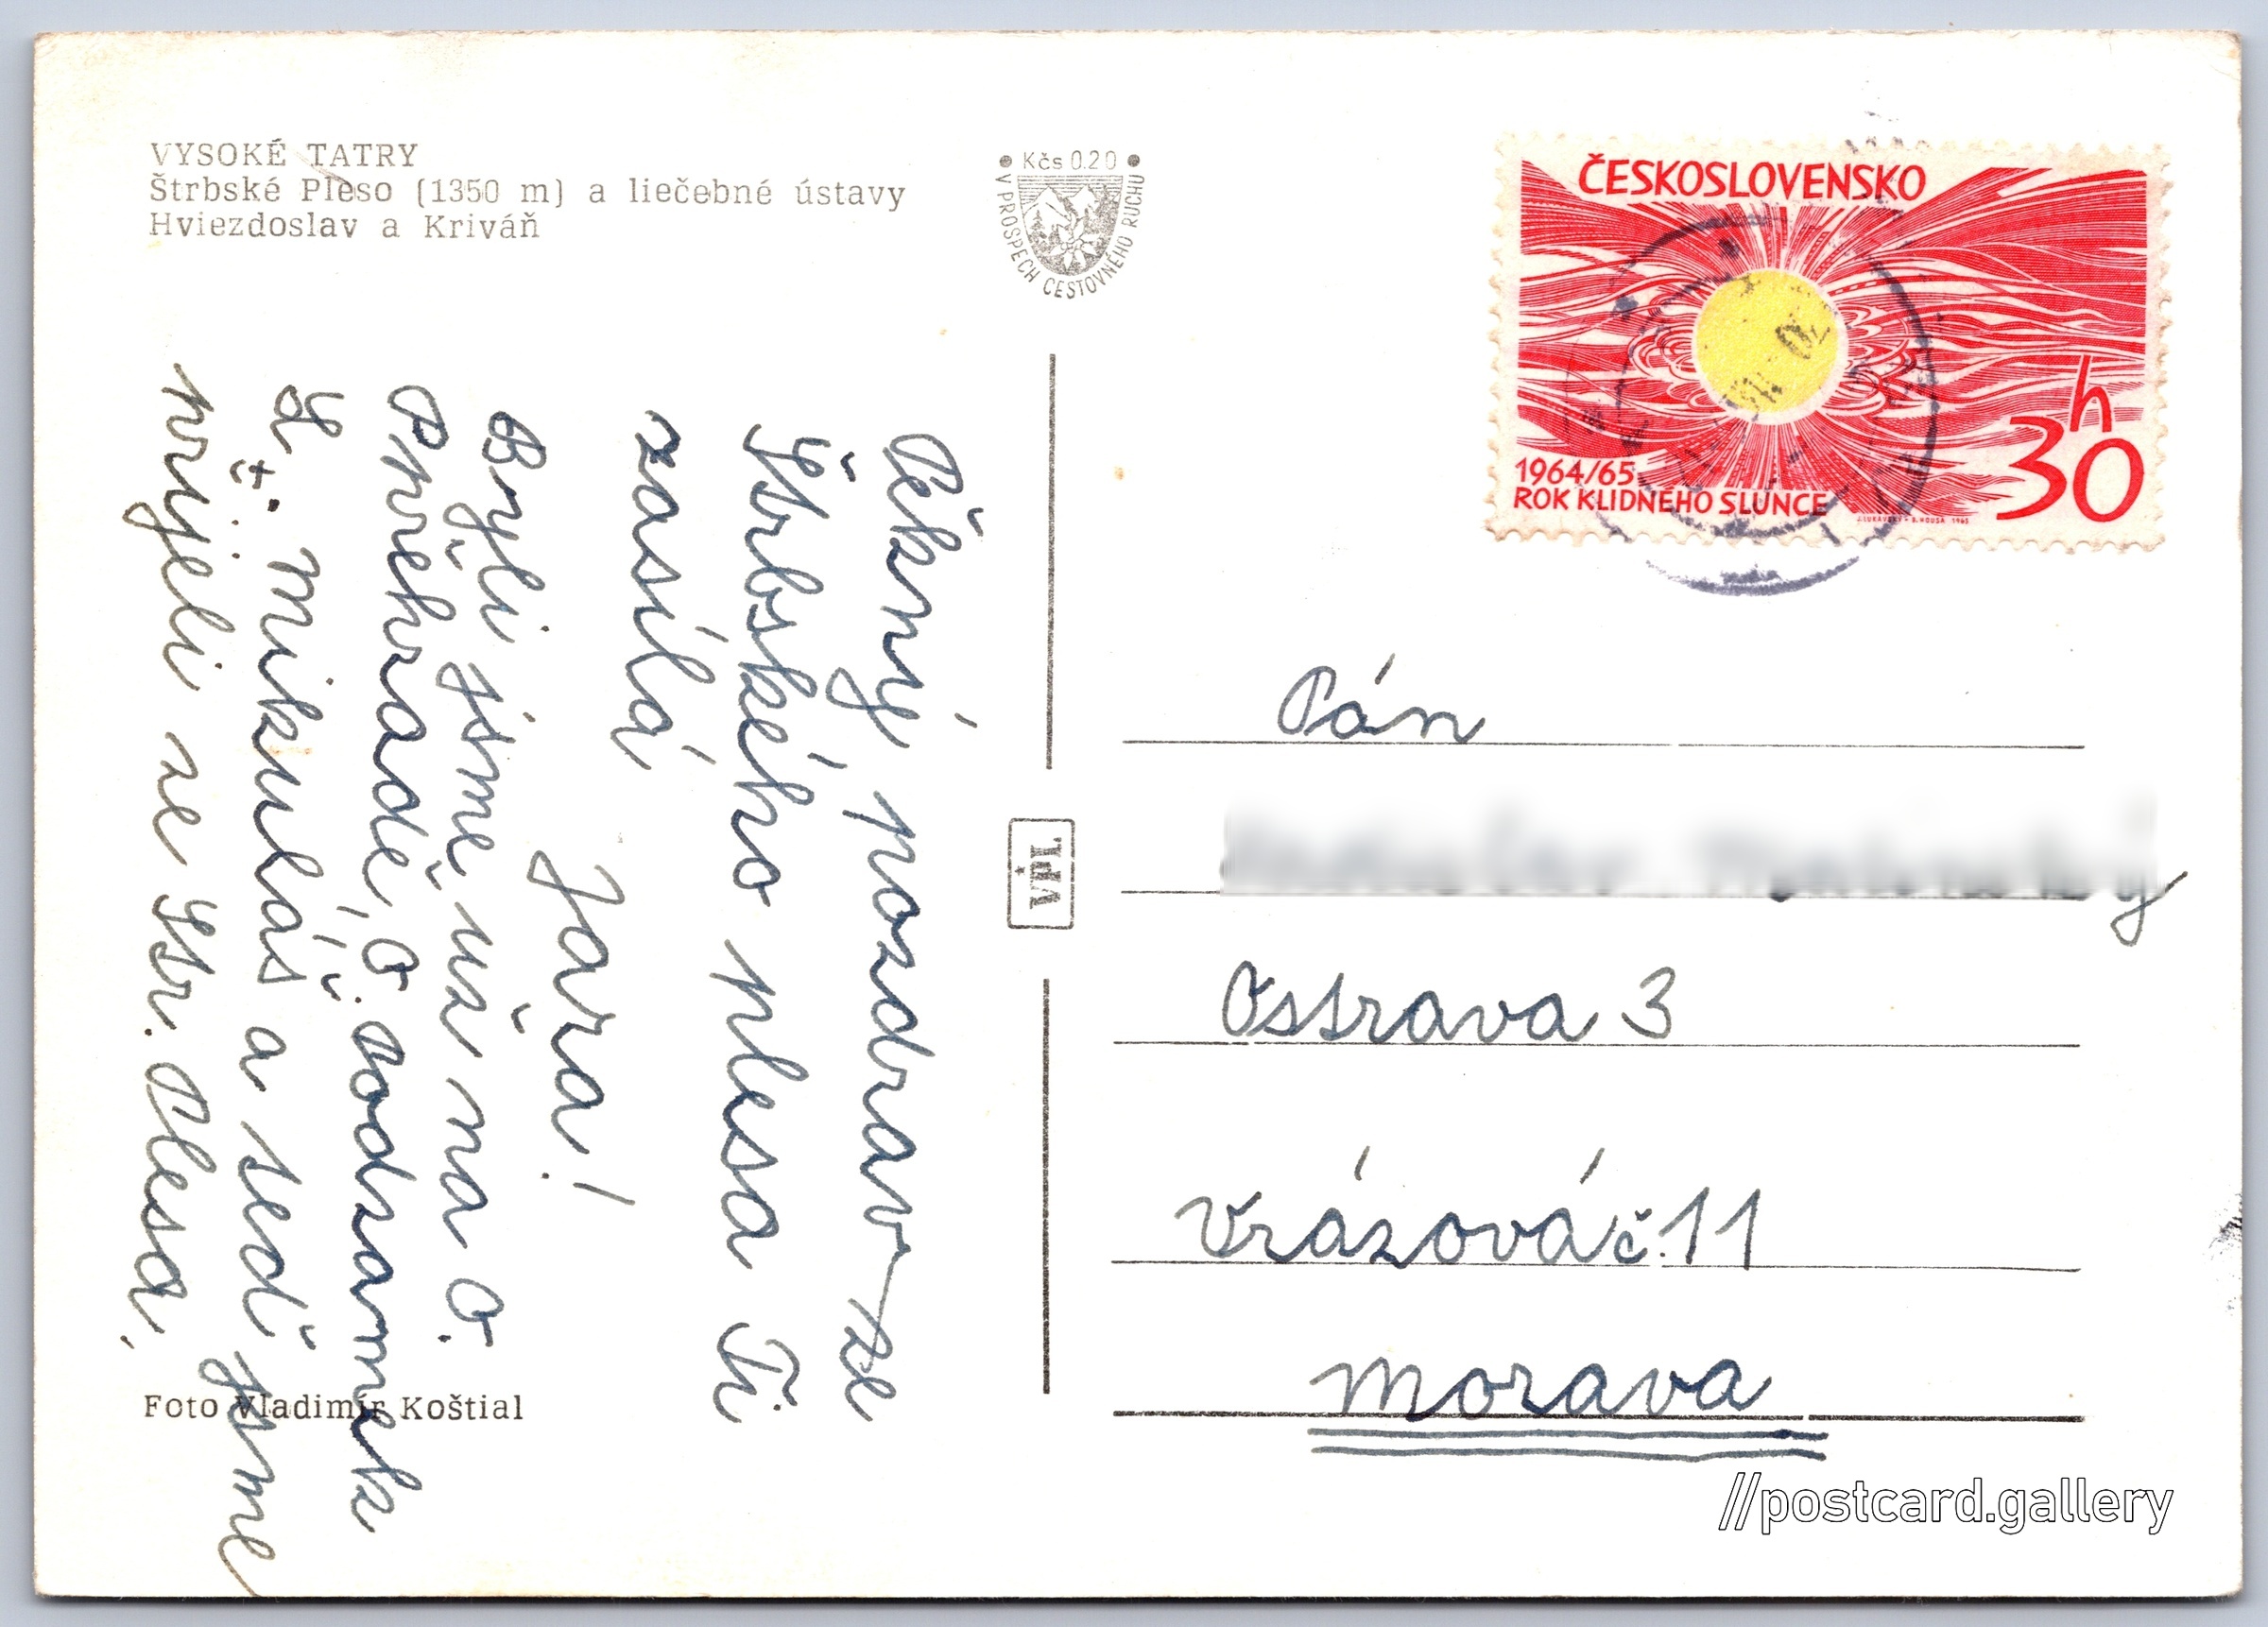 VYSOKÉ TATRY
Štrbské Pleso (1350 m) a liečebné ústavy
Hviezdoslav a Kriváň
• Kčs 0.20 •
V PROSPECH CESTOVNÉHO RUCHU
Pěkný pozdrav ze
Štrbského plesa Ti
zasílá
Jařa!
Byli jsme už na O.
Přehradě, O. zámek
L. Mikuláš a teď jsme
přijeli ze Štr. Plesa.
Foto Vladimír Koštial
VPL
ČESKOSLOVENSKO
30 h
1964/65
ROK KLIDNÉHO SLUNCE
J. LUKAVSKÝ - B. HOUSA 1965
Pán
Ostrava 3
Vrázová č. 11
Morava
//postcard.gallery